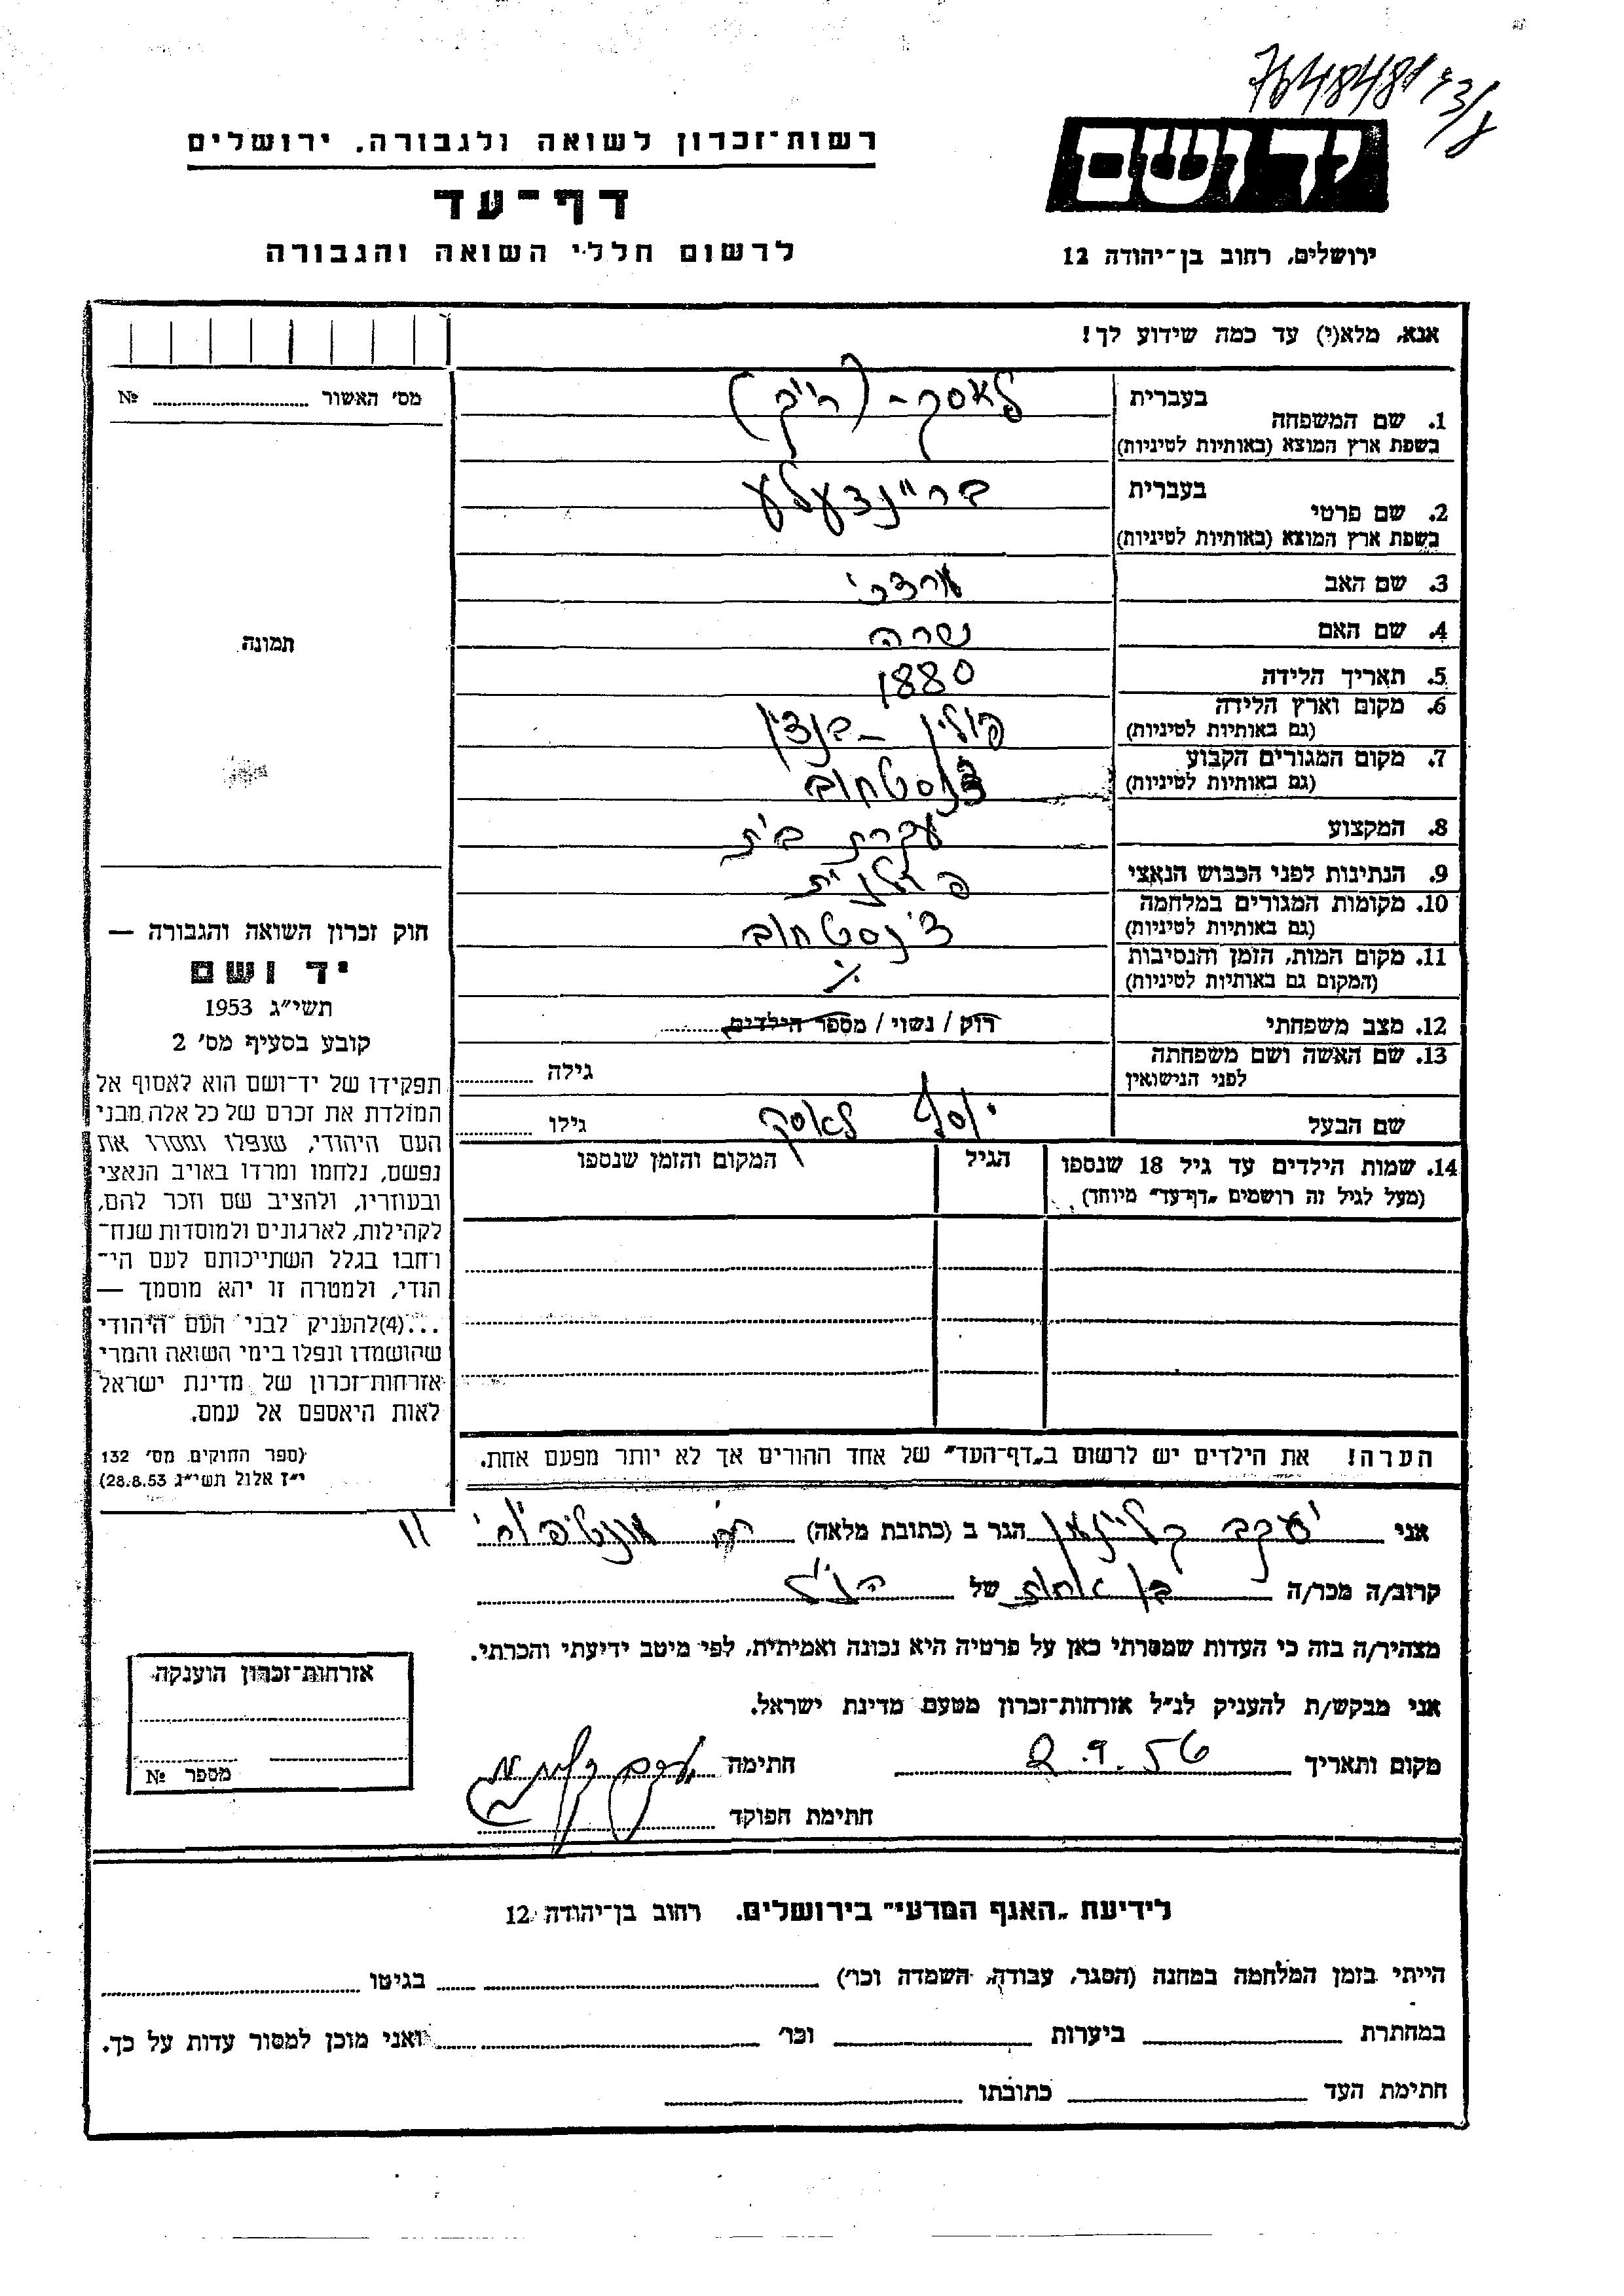 רשות־זכרון לשואה ולגבורה, ירושלים
דף־עד
לרשום חללי השואה והגבורה
יד ושם
ירושלים, רחוב בן־יהודה 12
אנא, מלא(י) עד כמה שידוע לך!
מס' האשור № 
תמונה
1. שם המשפחה
בעברית לאסק-
בשפת ארץ המוצא (באותיות לטיניות)
2. שם פרטי
בעברית בריינדעלע
בשפת ארץ המוצא (באותיות לטיניות)
3. שם האב מרדכי
4. שם האם שרה
5. תאריך הלידה 1880
6. מקום וארץ הלידה פולין - בנדין
(גם באותיות לטיניות)
7. מקום המגורים הקבוע צ'נסטחוב
(גם באותיות לטיניות)
8. המקצוע עקרת בית
9. הנתינות לפני הכבוש הנאצי פולנית
10. מקומות המגורים במלחמה צ'נסטחוב
(גם באותיות לטיניות)
11. מקום המות, הזמן והנסיבות
(המקום גם באותיות לטיניות)
12. מצב משפחתי רוק / נשוי / מספר הילדים
13. שם האשה ושם משפחתה
לפני הנישואין
גילה
שם הבעל יוסף לאסק גילו
14. שמות הילדים עד גיל 18 שנספו
(מעל לגיל זה רושמים „דף־עד" מיוחד)
הגיל
המקום והזמן שנספו
הערה! את הילדים יש לרשום ב„דף־העד" של אחד ההורים אך לא יותר מפעם אחת.
חוק זכרון השואה והגבורה —
יד ושם
תשי״ג 1953
קובע בסעיף מס' 2
תפקידו של יד־ושם הוא לאסוף אל
המולדת את זכרם של כל אלה מבני
העם היהודי, שנפלו ומסרו את
נפשם, נלחמו ומרדו באויב הנאצי
ובעוזריו, ולהציב שם וזכר להם,
לקהילות, לארגונים ולמוסדות שנח־
רחבו בגלל השתייכותם לעם הי־
הודי, ולמטרה זו יהא מוסמך —
...(4)להעניק לבני העם היהודי
שהושמדו ונפלו בימי השואה והמרי
אזרחות־זכרון של מדינת ישראל
לאות היאספם אל עמם.
(ספר החוקים מס' 132
י״ז אלול תשי״ג 28.8.53)
אני יעקב קליינמן הגר ב (כתובת מלאה) רח' מונטיפיורי 11
קרוב/ה מכר/ה בן אחות של הנ"ל
מצהיר/ה בזה כי העדות שמסרתי כאן על פרטיה היא נכונה ואמיתית, לפי מיטב ידיעתי והכרתי.
אני מבקש/ת להעניק לנ״ל אזרחות־זכרון מטעם מדינת ישראל.
מקום ותאריך 2.9.56 חתימה
חתימת הפוקד
אזרחות־זכרון הוענקה
מספר №
לידיעת „האגף המדעי" בירושלים. רחוב בן־יהודה 12
הייתי בזמן המלחמה במחנה (הסגר, עבודה, השמדה וכו') בגיטו
במחתרת ביערות וכו' ואני מוכן למסור עדות על כך.
חתימת העד כתובתו